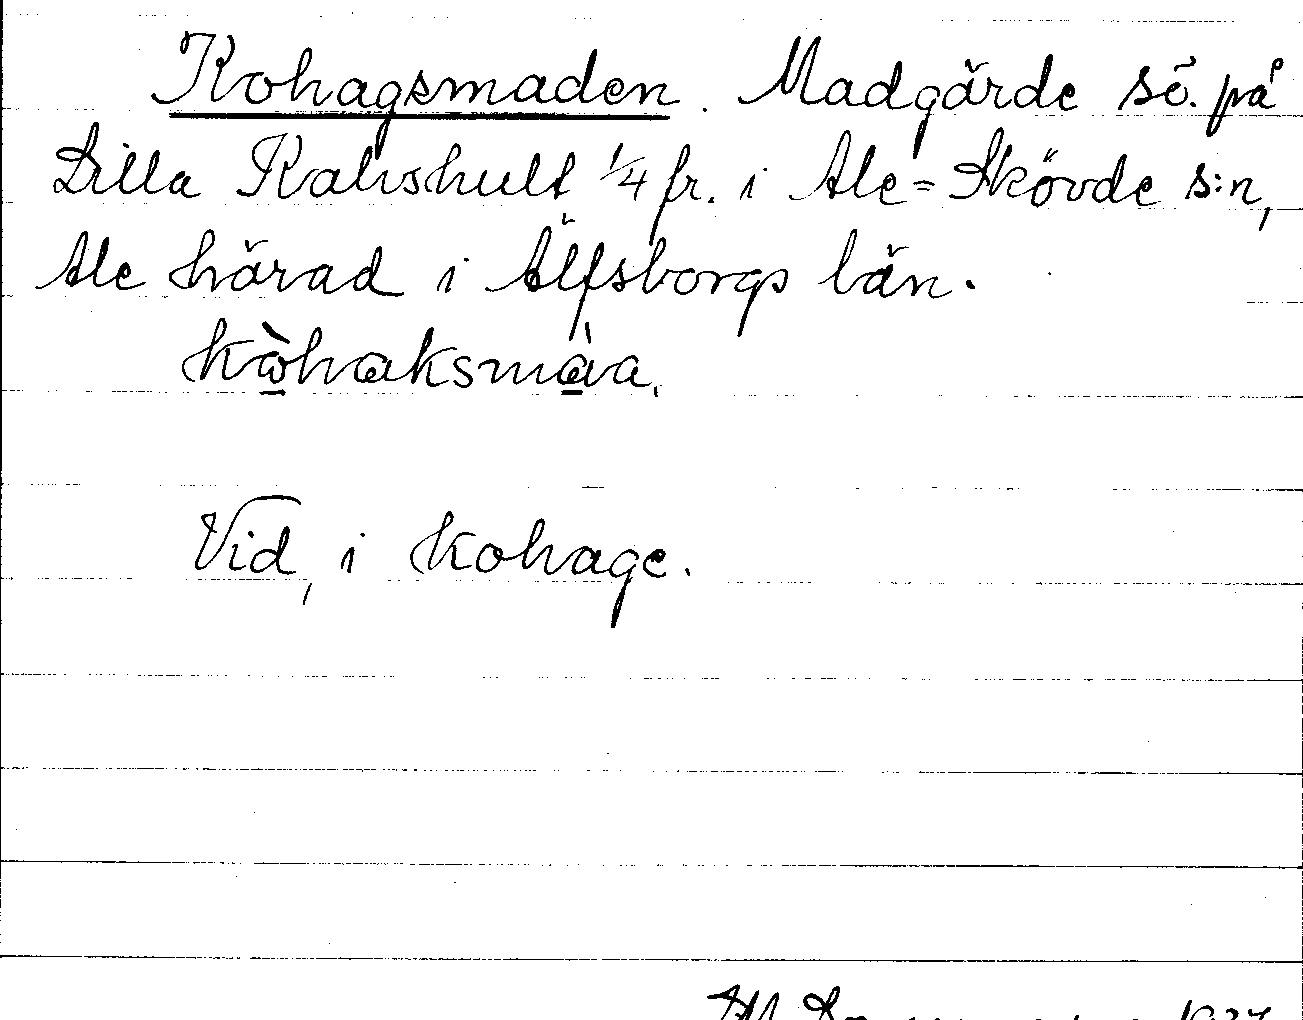 Kohagsmaden. Madgärde sö. på
Lilla Kahshult 1/4 fr. i Ale=Skövde s:n,
Ale härad i Älfsborgs län.
kὼ̲haksmàva.
Vid, i kohage.